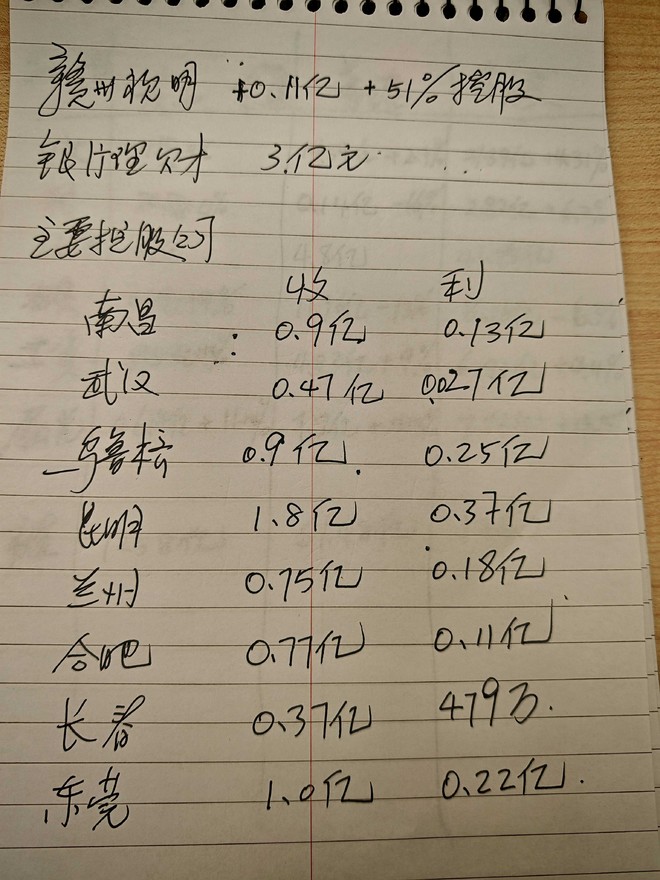 赣州视明 +0.11亿 +51%控股
银行理财 3亿元
主要控股公司
收 利
南昌 : 0.9亿 0.13亿
武汉 0.47亿 0.027亿
乌鲁木齐 0.9亿. 0.25亿
昆明 1.8亿 0.37亿
兰州 0.75亿 0.18亿
合肥 0.77亿 0.11亿
长春 0.37亿 479万.
东莞 1.0亿 0.22亿.